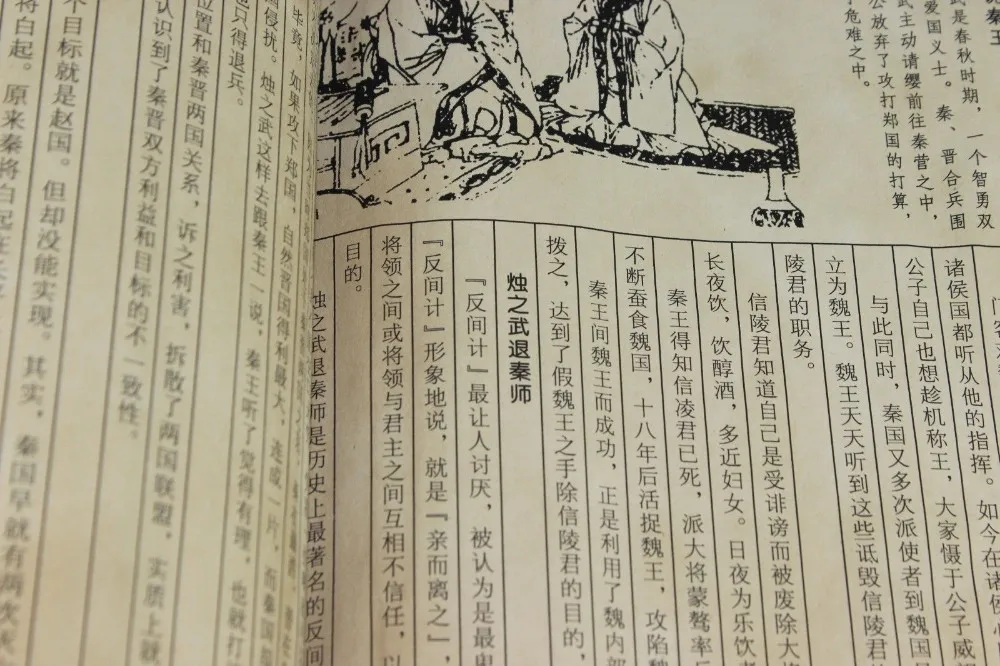 说秦王
武是春秋时期，一个智勇双
爱国义士。秦、晋合兵围
武主动请缨前往秦营之中，
公放弃了攻打郑国的打算，
了危难之中。
诸侯国都听从他的指挥。如今在诸侯
公子自己也想趁机称王，大家慑于公子威
与此同时，秦国又多次派使者到魏国
立为魏王。魏王天天听到这些诋毁信陵君
陵君的职务。
信陵君知道自己是受诽谤而被废除大
长夜饮，饮醇酒，多近妇女。日夜为乐饮者
秦王得知信凌君已死，派大将蒙骜率
不断蚕食魏国，十八年后活捉魏王，攻陷魏
秦王间魏王而成功，正是利用了魏内部
拨之，达到了假魏王之手除信陵君的目的，
烛之武退秦师
『反间计』最让人讨厌，被认为是最卑
『反间计』形象地说，就是『亲而离之』，
将领之间或将领与君主之间互相不信任，以
目的。
烛之武退秦师是历史上最著名的反间
毕竟，如果攻下郑国，自然晋国得利最大，连成一片，而秦国
侵扰。烛之武这样去跟秦王一说，秦王听了觉得有理，也就打
也只得退兵。
位置和秦晋两国关系，诉之利害，拆散了两国联盟，实质上就
认识到了秦晋双方利益和目标的不一致性。
个目标就是赵国。但却没能实现。其实，秦国早就有两次
将白起。原来秦将白起在